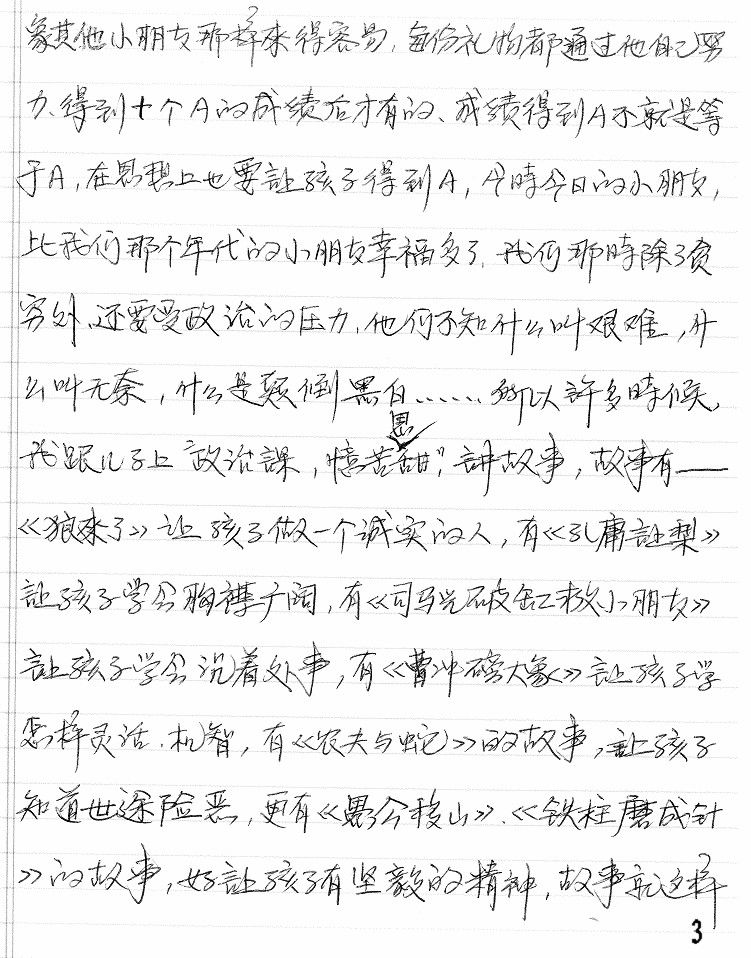 象其他小朋友那样来得容易,每份礼物都通过他自己努
力、得到十个A的成绩后才有的、成绩得到A不就是等
于A,在思想上也要讓孩子得到A,今時今日的小朋友,
比我们那个年代的小朋友幸福多了.我们那時除了贫
穷外、还要受政治的压力,他们不知什么叫艰难,什
么叫无奈,什么是颠倒黑白……所以許多時候,
我跟儿子上“政治課,憶苦思甜”,講故事,故事有——
《狼來了》让孩子做一个诚实的人,有《孔庸讓梨》
讓孩子学会胸襟广阔,有《司马光破缸救小朋友》
讓孩子学会沉着处事,有《曹冲磅大象》讓孩子学
怎样灵活.机智,有《农夫与蛇》的故事,讓孩子
知道世途险恶,更有《愚公移山》.《铁柱磨成针
》的故事,好讓孩子有坚毅的精神,故事就这样
3